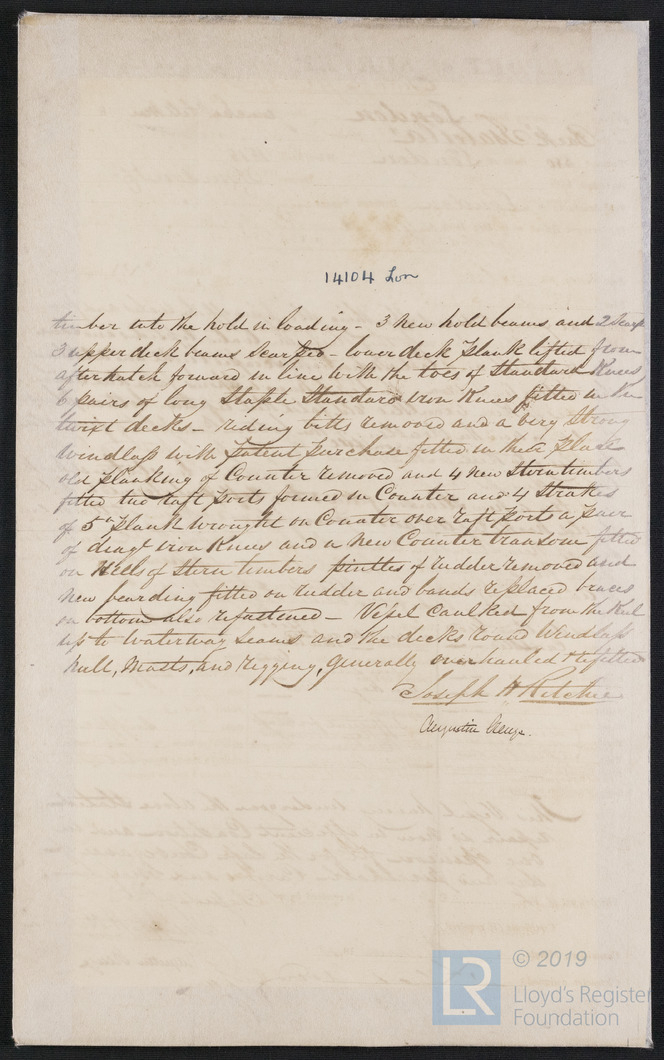 14104 Lon
timber into the hold in loading - 3 New hold beams and 2 Scarp
3 upper deck beams Scarped - lower deck plank lifted from
after hatch forward in line with the toes of Standard Knees
6 pairs of long Staple Standard iron Knees fitted in be
twixt decks - riding bitts removed and a very Strong
Windlass with patent purchase fitted in their place
old planking of Counter removed and 4 new Stern timbers
fitted two raft ports formed in Counter and 4 Strakes
of 5in plank wrought on Counter over raft ports a pair
of diagl iron Knees and a new Counter transom fitted
on Heels of Stern timbers pintles of rudder removed and
New bearding fitted on rudder and bands replaced braces
on bottom also refastened - Vessel Caulked from the Keel
up to waterway seams and the decks round Windlass
hull, Masts, and rigging, generally overhauled & refitted
Joseph H Ritchie
Augustin
© 2019
LR
Lloyd's Register
Foundation